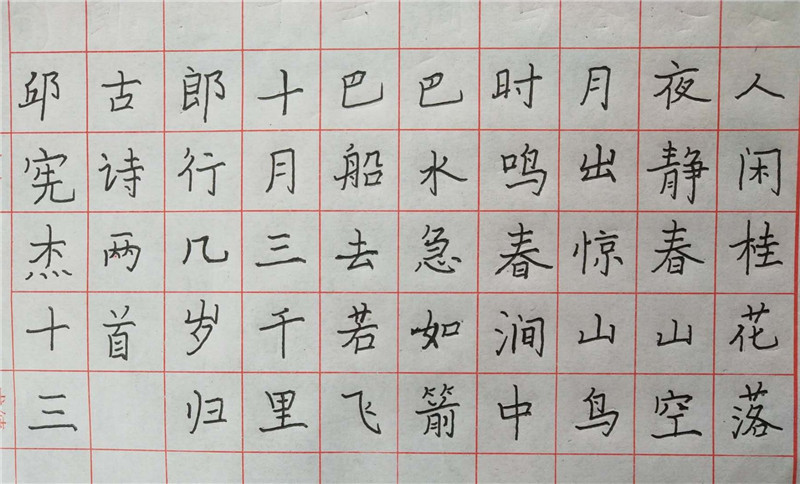 人闲桂花落
夜静春山空
月出惊山鸟
时鸣春涧中
巴水急如箭
巴船去若飞
十月三千里
郎行几岁归
古诗两首
邱宪杰十三